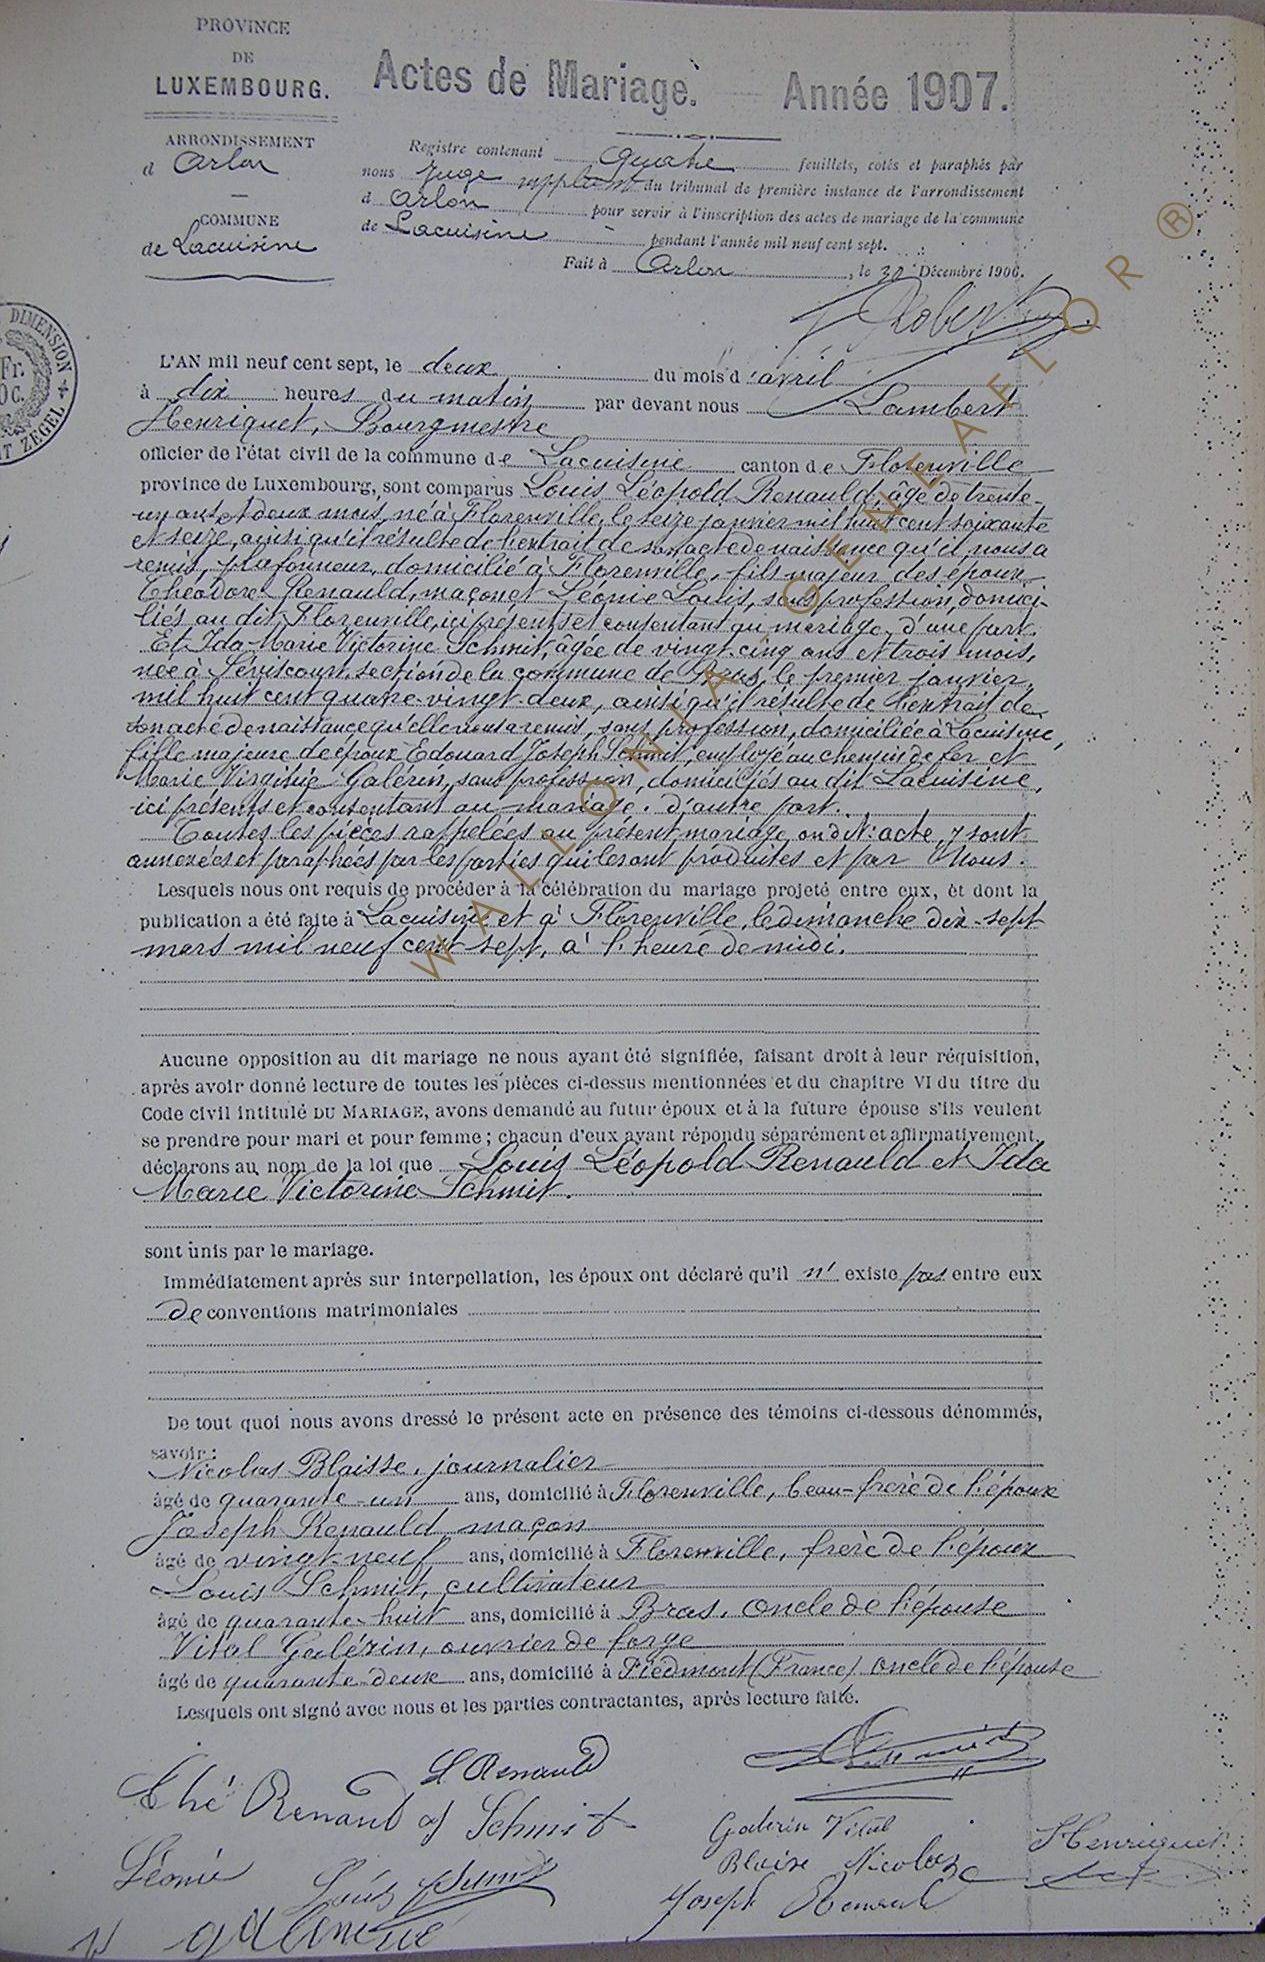 PROVINCE
DE
LUXEMBOURG.
Actes de Mariage. Année 1907.
ARRONDISSEMENT
d Arlon
COMMUNE
de Lacuisine
Registre contenant quatre feuillets, cotés et paraphés par
nous Juge suppléant du tribunal de première instance de l'arrondissement
d Arlon pour servir à l'inscription des actes de mariage de la commune
de Lacuisine pendant l'année mil neuf cent sept.
Fait à Arlon, le 30 Décembre 1906.
DIMENSION
Fr.
ZEGEL
L'AN mil neuf cent sept, le deux du mois d'avril
à dix heures du matin par devant nous Lambert
Henriquet, Bourgmestre
officier de l'état civil de la commune de Lacuisine canton de Florenville
province de Luxembourg, sont comparus Louis Léopold Renauld, âgé de trente-
un ans et deux mois, né à Florenville, le seize janvier mil huit cent soixante
et seize, ainsi qu'il résulte de l'extrait de son acte de naissance qu'il nous a
remis, plafonneur, domicilié à Florenville, fils majeur des époux
Théodore Renauld, maçon et Léonie Louis, sans profession, domici-
liés au dit Florenville, ici présents et consentant au mariage, d'une part.
Et Ida Marie Victorine Schmit, âgée de vingt-cinq ans et trois mois,
née à Séviscourt, section de la commune de Bras, le premier janvier
mil huit cent quatre-vingt-deux, ainsi qu'il résulte de l'extrait de
son acte de naissance qu'elle nous a remis, sans profession, domiciliée à Lacuisine,
fille majeure de époux Edouard Joseph Schmit, employé au chemin de fer et
Marie Virginie Galérin, sans profession, domiciliés au dit Lacuisine,
ici présents et consentant au mariage, d'autre part.
Toutes les pièces rappelées au présent mariage, ou dit acte, y sont
annexées et paraphées par les parties qui les ont produites et par Nous.
Lesquels nous ont requis de procéder à la célébration du mariage projeté entre eux, et dont la
publication a été faite à Lacuisine et à Florenville, le dimanche dix-sept
mars mil neuf cent sept, à l'heure de midi.
Aucune opposition au dit mariage ne nous ayant été signifiée, faisant droit à leur réquisition,
après avoir donné lecture de toutes les pièces ci-dessus mentionnées et du chapitre VI du titre du
Code civil intitulé DU MARIAGE, avons demandé au futur époux et à la future épouse s'ils veulent
se prendre pour mari et pour femme; chacun d'eux ayant répondu séparément et affirmativement,
déclarons au nom de la loi que Louis Léopold Renauld et Ida
Marie Victorine Schmit.
sont unis par le mariage.
Immédiatement après sur interpellation, les époux ont déclaré qu'il n' existe pas entre eux
de conventions matrimoniales
De tout quoi nous avons dressé le présent acte en présence des témoins ci-dessous dénommés,
savoir:
Nicolas Blaisse, journalier
âgé de quarante-un ans, domicilié à Florenville, beau-frère de l'époux
Joseph Renauld, maçon
âgé de vingt-neuf ans, domicilié à Florenville, frère de l'époux
Louis Schmit, cultivateur
âgé de quarante-huit ans, domicilié à Bras, oncle de l'épouse
Vital Galérin, ouvrier de forge
âgé de quarante-deux ans, domicilié à Piedmont (France) oncle de l'épouse
Lesquels ont signé avec nous et les parties contractantes, après lecture faite.
L Renauld
Thé Renauld
Schmit
Galérin Vital
LHenriquet
Léonie Louis
Blaise Nicolas
Joseph Renauld
WALLONIA GENEAELOR ®